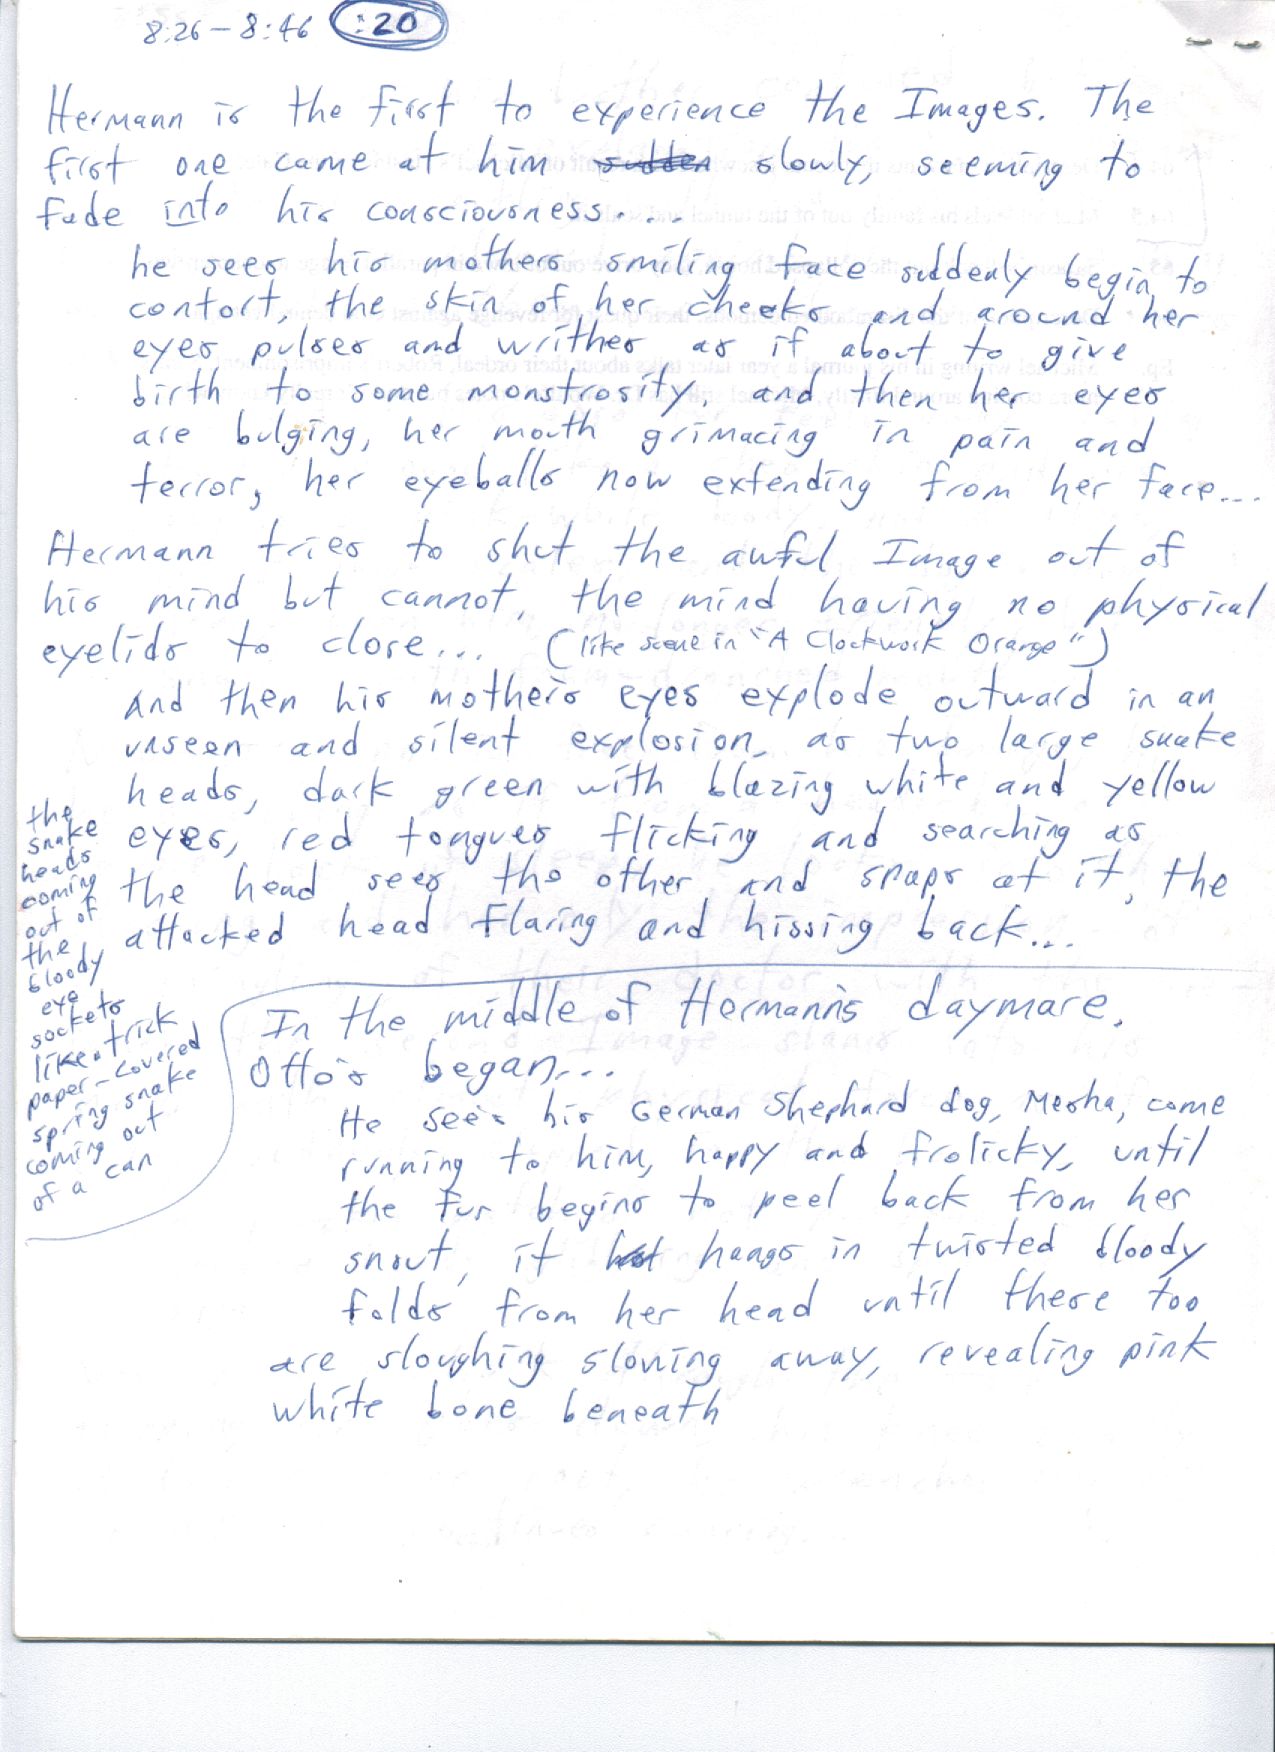 8:26 – 8:46 :20
Hermann is the first to experience the Images. The
first one came at him sudden slowly, seeming to
fade into his consciousness....
he sees his mothers smiling face suddenly begin to
contort, the skin of her cheeks and around her
eyes pulses and writhes as if about to give
birth to some monstrosity, and then her eyes
are bulging, her mouth grimacing in pain and
terror, her eyeballs now extending from her face...
Hermann tries to shut the awful Image out of
his mind but cannot, the mind having no physical
eyelids to close... (like scene in "A Clockwork Orange")
And then his mother's eyes explode outward in an
unseen and silent explosion, as two large snake
heads, dark green with blazing white and yellow
eyes, red tongues flicking and searching as
the head sees the other and snaps at it, the
attacked head flaring and hissing back...
the
snake
heads
coming
out of
the
bloody
eye
sockets
like a trick
paper-covered
spring snake
coming out
of a can
In the middle of Hermann's daymare,
Otto's began...
He sees his German Shephard dog, Mesha, come
running to him, happy and frolicky, until
the fur begins to peel back from her
snout, it hangs in twisted bloody
folds from her head until these too
are sloughing slowing away, revealing pink
white bone beneath